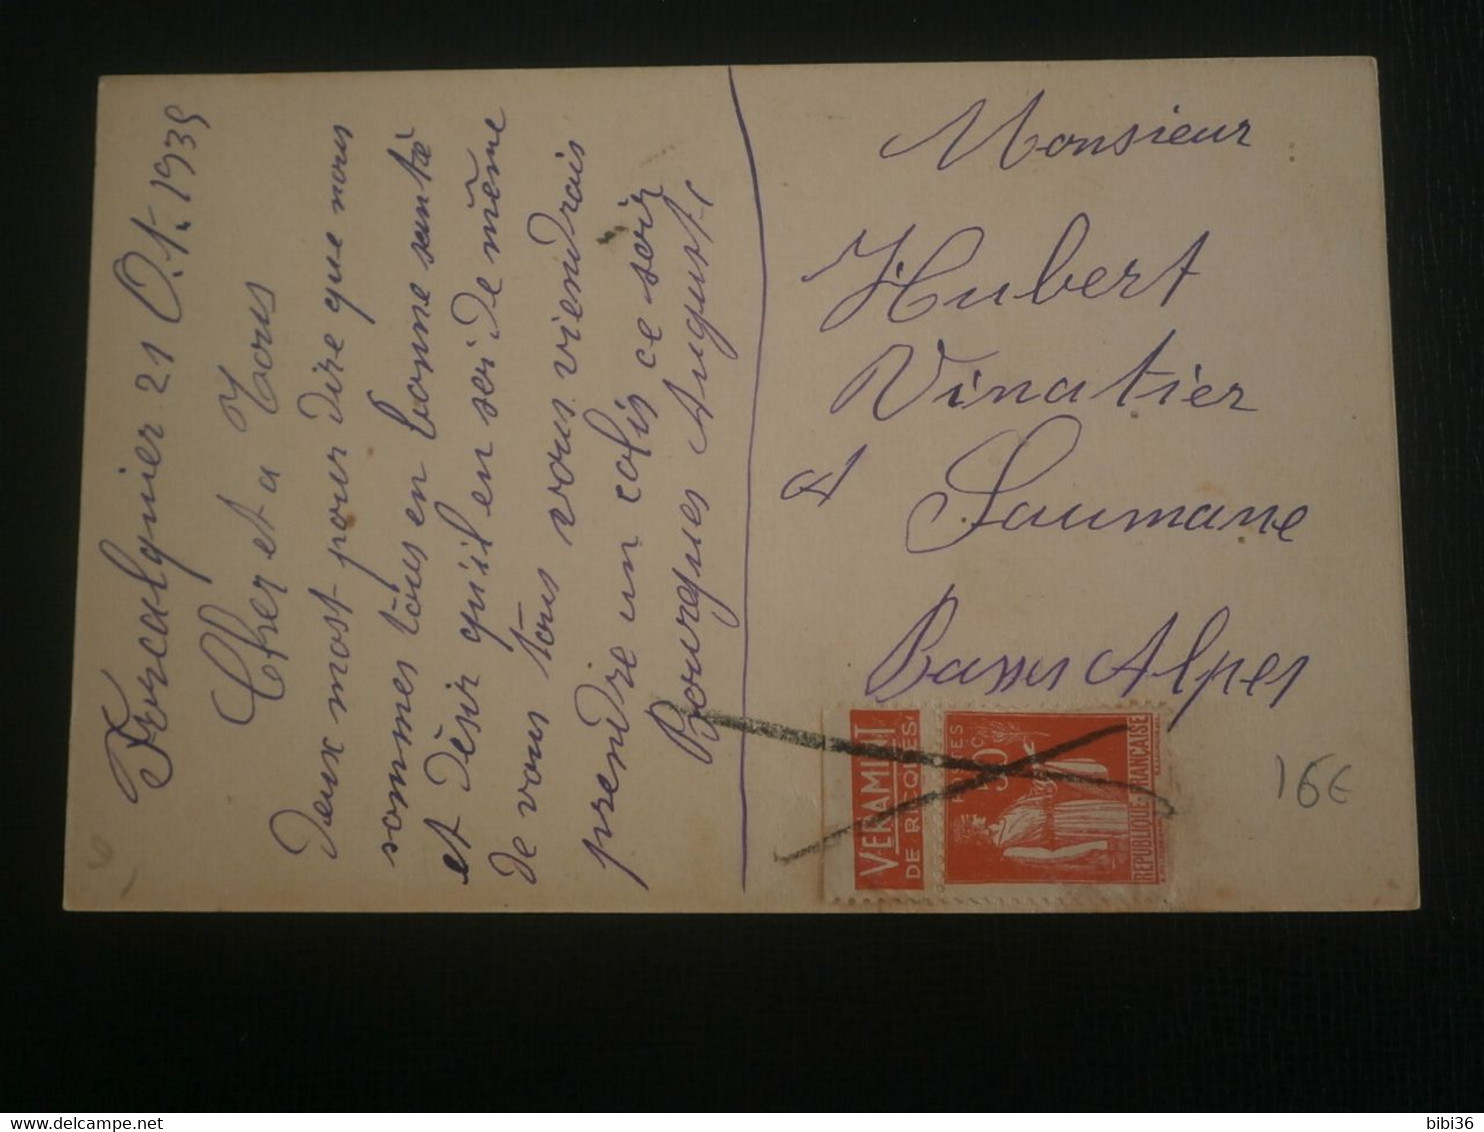 Forcalquier 21 Oct. 1935
Cher et a Tous
Deux most pour dire que nous
sommes tous en bonne santè
et Dèsir qu'il en soi de même
De vous tous vous viendrais
prendre un colis ce soir
Bourgues Auguste
Monsieur
Hubert
Vinatier
A Saumane
Basses Alpes
VERAMINT
DE RICQLES
POSTES
50c
REPUBLIQUE FRANÇAISE
16€
bibi36